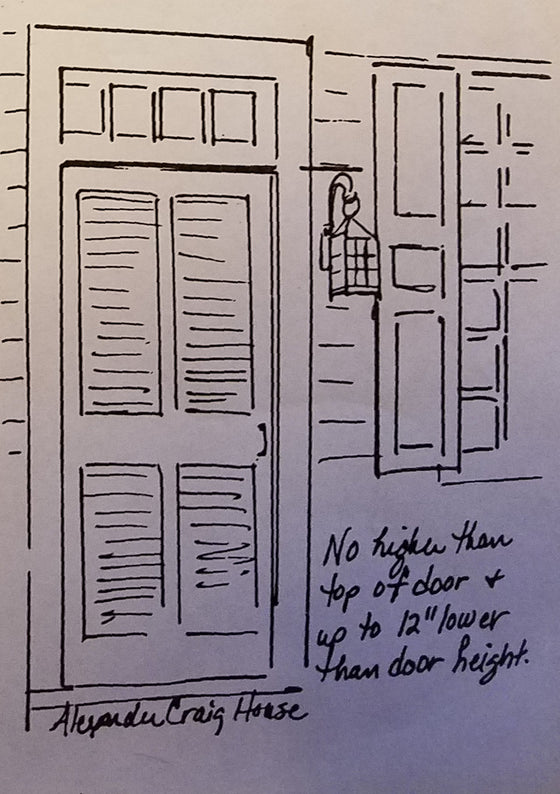 No higher than
top of door +
up to 12" lower
than door height.
Alexander Craig House